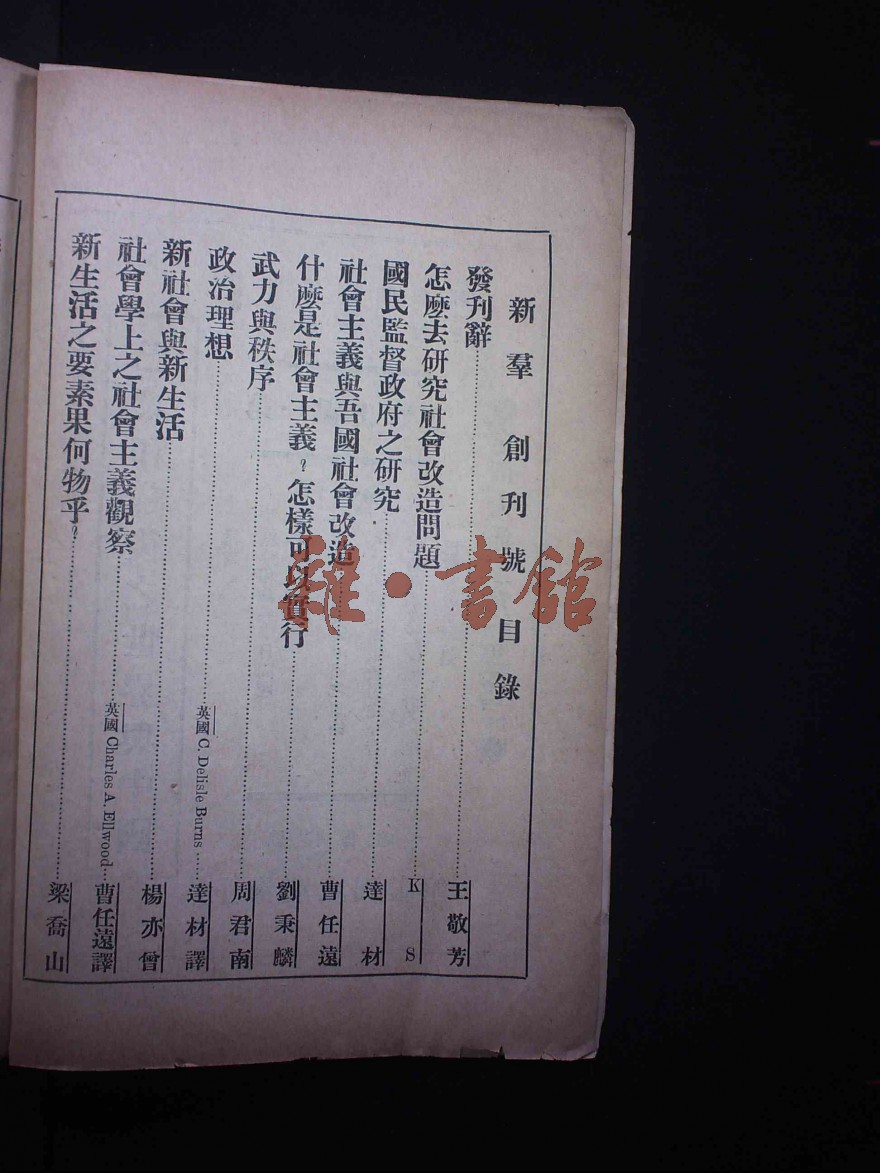 新羣 創刊號 目錄
發刊辭……王敬芳
怎麽去研究社會改造問題……K S
國民監督政府之研究……達材
社會主義與吾國社會改造……曹任遠
什麽是社會主義？怎樣可以實行……劉秉麟
武力與秩序……周君南
政治理想……英國 C. Delisle Burns……達材譯
新社會與新生活……楊亦曾
社會學上之社會主義觀察……英國 Charles A. Ellwood……曹任遠譯
新生活之要素果何物乎？……梁喬山
雜·書館